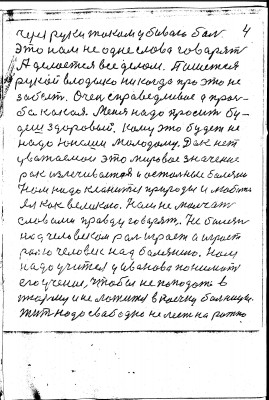 4
через руки током убивать бол
это нам не одне слова говарят
А делается все делом. Пишется
рукой владыки никогда про это не
забыть. Очен справедливое а прос-
ба какая. Меня надо просить бу-
деш здоровый. Кому это будет не
надо юноши молодому. Дак нет
уважаемои это мировое значение
рак излечивается и остальные болезни
Нам надо кланится природы и любить
ея как великою. Нам не молчат
словами правду говорят. Не болезн
над человеком рол играет а играет
рол человек над болезнию. Нам
надо учится у иванова понимать
его учение, чтобы не поподать в
тюрму и не ложится в коечку больницы.
Жить надо свабодно не лезть на ражно